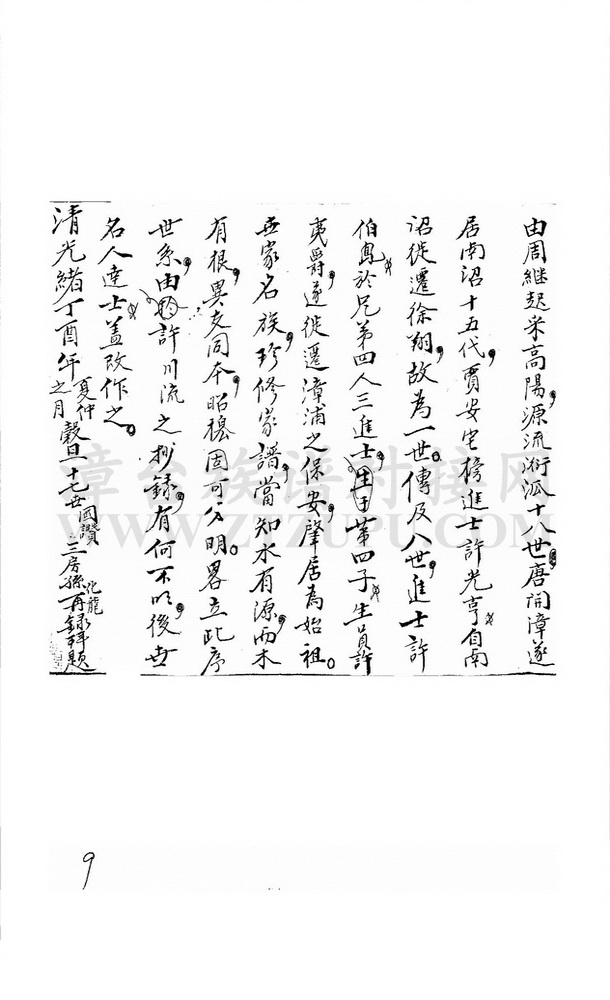 由周継起来高陽，源流衍派十八世唐開漳遂
居南沼十五代，賈安宅榜進士許光亨，自南
沼徙遷徐翔，故為一世。傳及八世，進士許
伯鳳，於兄第四人三進士，生于苐四子生員許
夷爵，遂徙遷漳浦之保安，肇居為始祖。
世家名族，珍修家譜，當知水有源，而木
有根，異支同本，昭穆固可分明。畧立此序
世系，由許川流之抄錄，有何不明，後世
名人達士盖改作之。
清光緒丁酉年夏仲之月穀旦十七世國讚三房孫化龍再錄拜題
章台族谱对接网
WWW.ZTZUPU.COM
9